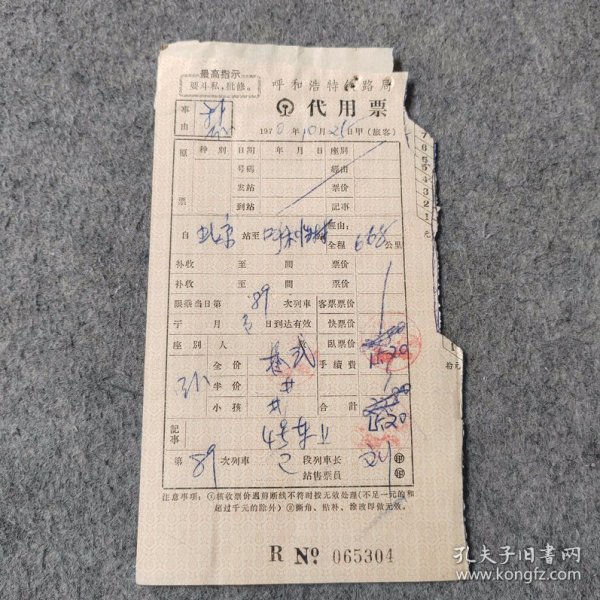 最高指示
要斗私,批修。
呼和浩特铁路局
代用票
事由
1970年10月 日甲(旅客)
原票
种别 日期 年 月 日 座别
号码 經由
发站 票价
到站 記事
自 北京 站至 呼和浩特 經由:
全程 668 公里
补收 至 間 票价
补收 至 間 票价
限乘当日第 89 次列車 客票票价
于 月 日到达有效 快票价
座别 人 数 臥票价 1520
全价 手續費
半价
小孩 合計 1520
記事 4号车
第 89 次列車 段列車长 刘 印
站售票員 印
注意事項:①核收票价遇剪断线不符时按无效处理(不足一元的和
超过千元的除外)②撕角、貼补、涂改即做无效。
R No 065304
7
6
5
4
3
2
1
元
拾元
孔夫子旧书网
www.kongfz.com